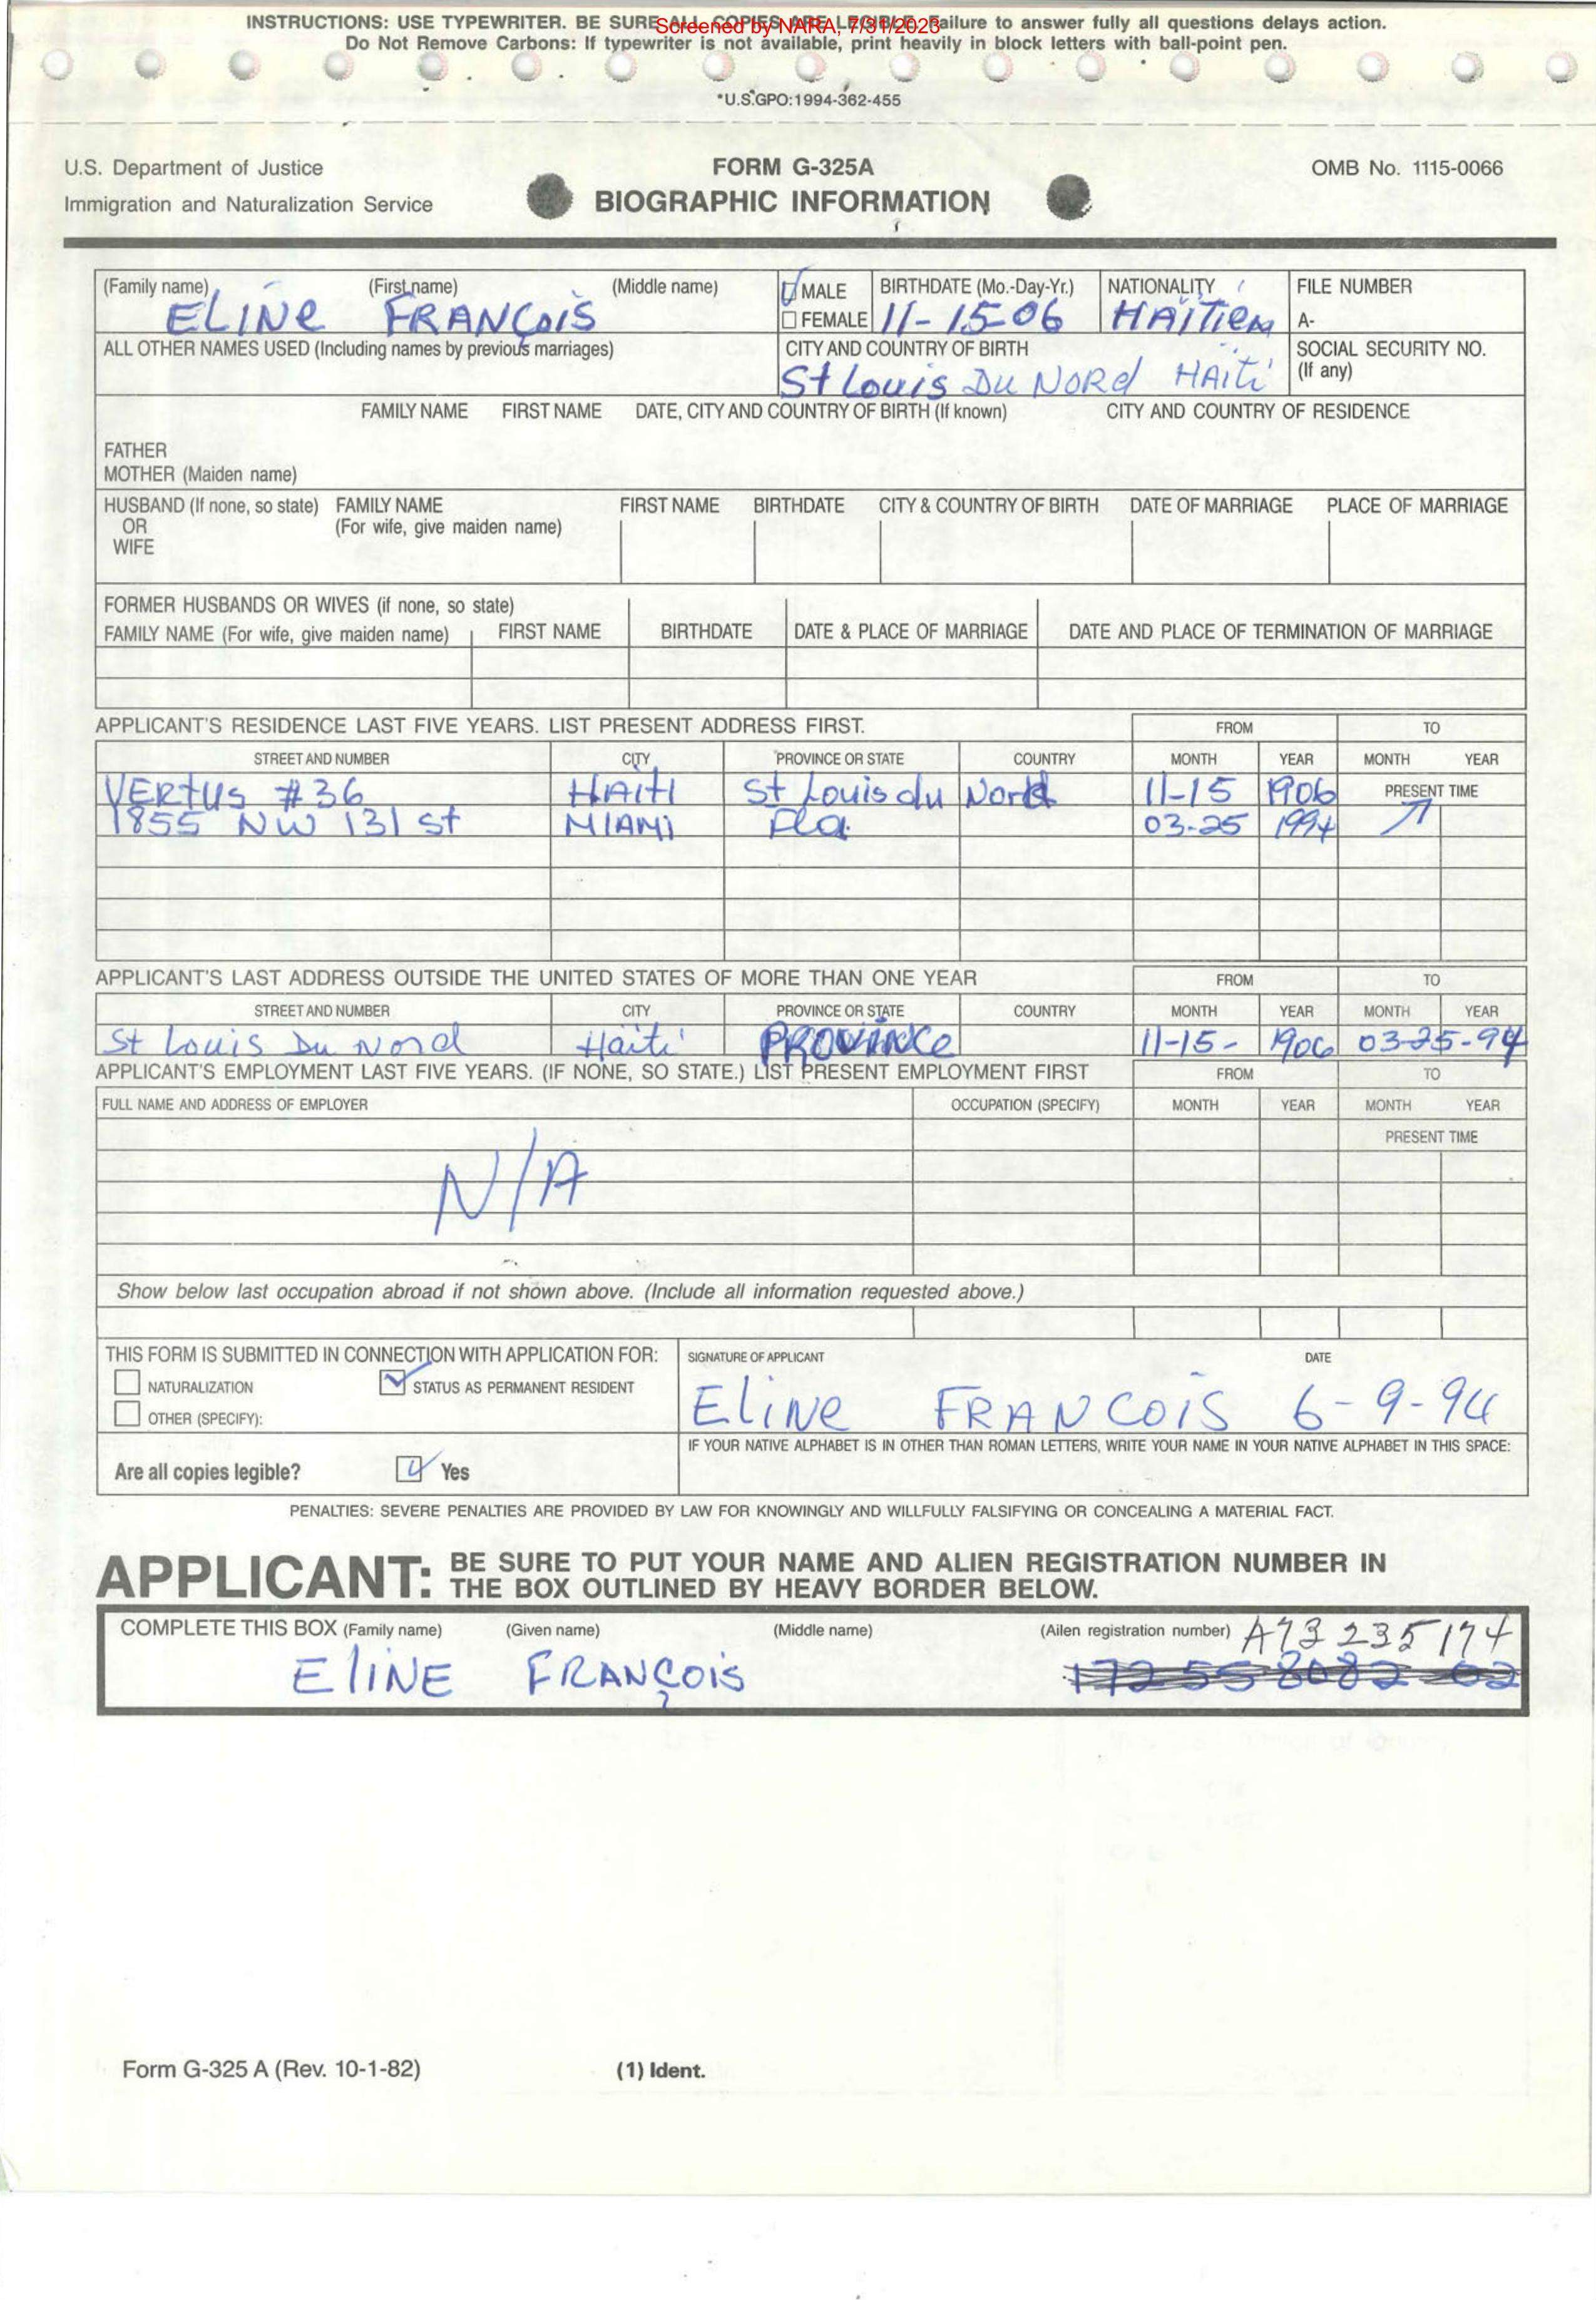 INSTRUCTIONS: USE TYPEWRITER. BE SURE ALL COPIES ARE LEGIBLE. Failure to answer fully all questions delays action.
Screened by NARA, 7/31/2023
Do Not Remove Carbons: If typewriter is not available, print heavily in block letters with ball-point pen.
*U.S.GPO:1994-362-455
U.S. Department of Justice FORM G-325A OMB No. 1115-0066
Immigration and Naturalization Service BIOGRAPHIC INFORMATION
(Family name) (First name) (Middle name) MALE BIRTHDATE (Mo.-Day-Yr.) NATIONALITY FILE NUMBER
ELINe FRANÇOIS FEMALE 11-15-06 HAÏTIEN A-
ALL OTHER NAMES USED (Including names by previous marriages) CITY AND COUNTRY OF BIRTH SOCIAL SECURITY NO.
St Louis Du NORd HAiti (If any)
FAMILY NAME FIRST NAME DATE, CITY AND COUNTRY OF BIRTH (If known) CITY AND COUNTRY OF RESIDENCE
FATHER
MOTHER (Maiden name)
HUSBAND (If none, so state) FAMILY NAME FIRST NAME BIRTHDATE CITY & COUNTRY OF BIRTH DATE OF MARRIAGE PLACE OF MARRIAGE
OR (For wife, give maiden name)
WIFE
FORMER HUSBANDS OR WIVES (if none, so state)
FAMILY NAME (For wife, give maiden name) FIRST NAME BIRTHDATE DATE & PLACE OF MARRIAGE DATE AND PLACE OF TERMINATION OF MARRIAGE
APPLICANT'S RESIDENCE LAST FIVE YEARS. LIST PRESENT ADDRESS FIRST. FROM TO
STREET AND NUMBER CITY PROVINCE OR STATE COUNTRY MONTH YEAR MONTH YEAR
VERtUS #36 HAItI St Louis du Nord 11-15 1906 PRESENT TIME
1855 NW 131 st MIAMI Fla. 03-25 1994
APPLICANT'S LAST ADDRESS OUTSIDE THE UNITED STATES OF MORE THAN ONE YEAR FROM TO
STREET AND NUMBER CITY PROVINCE OR STATE COUNTRY MONTH YEAR MONTH YEAR
St Louis Du Nord Haiti PROVINCe 11-15- 1906 03-25-94
APPLICANT'S EMPLOYMENT LAST FIVE YEARS. (IF NONE, SO STATE.) LIST PRESENT EMPLOYMENT FIRST FROM TO
FULL NAME AND ADDRESS OF EMPLOYER OCCUPATION (SPECIFY) MONTH YEAR MONTH YEAR
PRESENT TIME
N/A
Show below last occupation abroad if not shown above. (Include all information requested above.)
THIS FORM IS SUBMITTED IN CONNECTION WITH APPLICATION FOR: SIGNATURE OF APPLICANT DATE
NATURALIZATION STATUS AS PERMANENT RESIDENT
OTHER (SPECIFY): ElINe FRANCOIS 6-9-94
IF YOUR NATIVE ALPHABET IS IN OTHER THAN ROMAN LETTERS, WRITE YOUR NAME IN YOUR NATIVE ALPHABET IN THIS SPACE:
Are all copies legible? Yes
PENALTIES: SEVERE PENALTIES ARE PROVIDED BY LAW FOR KNOWINGLY AND WILLFULLY FALSIFYING OR CONCEALING A MATERIAL FACT.
APPLICANT: BE SURE TO PUT YOUR NAME AND ALIEN REGISTRATION NUMBER IN
THE BOX OUTLINED BY HEAVY BORDER BELOW.
COMPLETE THIS BOX (Family name) (Given name) (Middle name) (Ailen registration number) A73 235 174
ElINE FRANÇOIS
Form G-325 A (Rev. 10-1-82) (1) Ident.